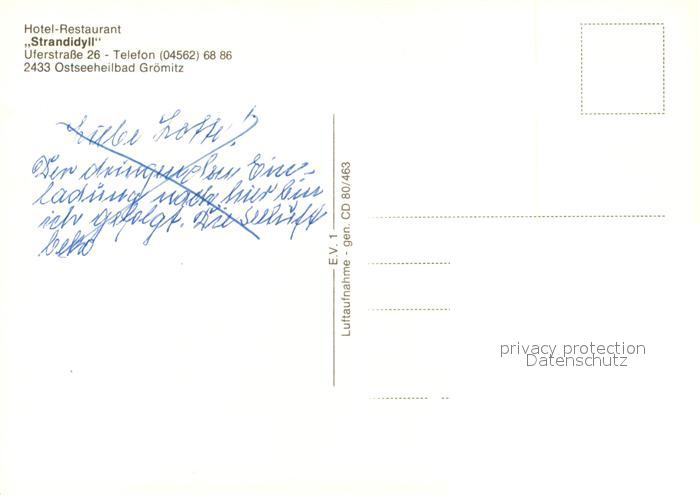 Hotel-Restaurant
„Strandidyll“
Uferstraße 26 - Telefon (04562) 68 86
2433 Ostseeheilbad Grömitz
Liebe Lotte!
Der dringenden Ein-
ladung nach hier bin
ich gefolgt. Die Seeluft
beko
E.V. 1
Luftaufnahme - gen. CD 80/463
privacy protection
Datenschutz